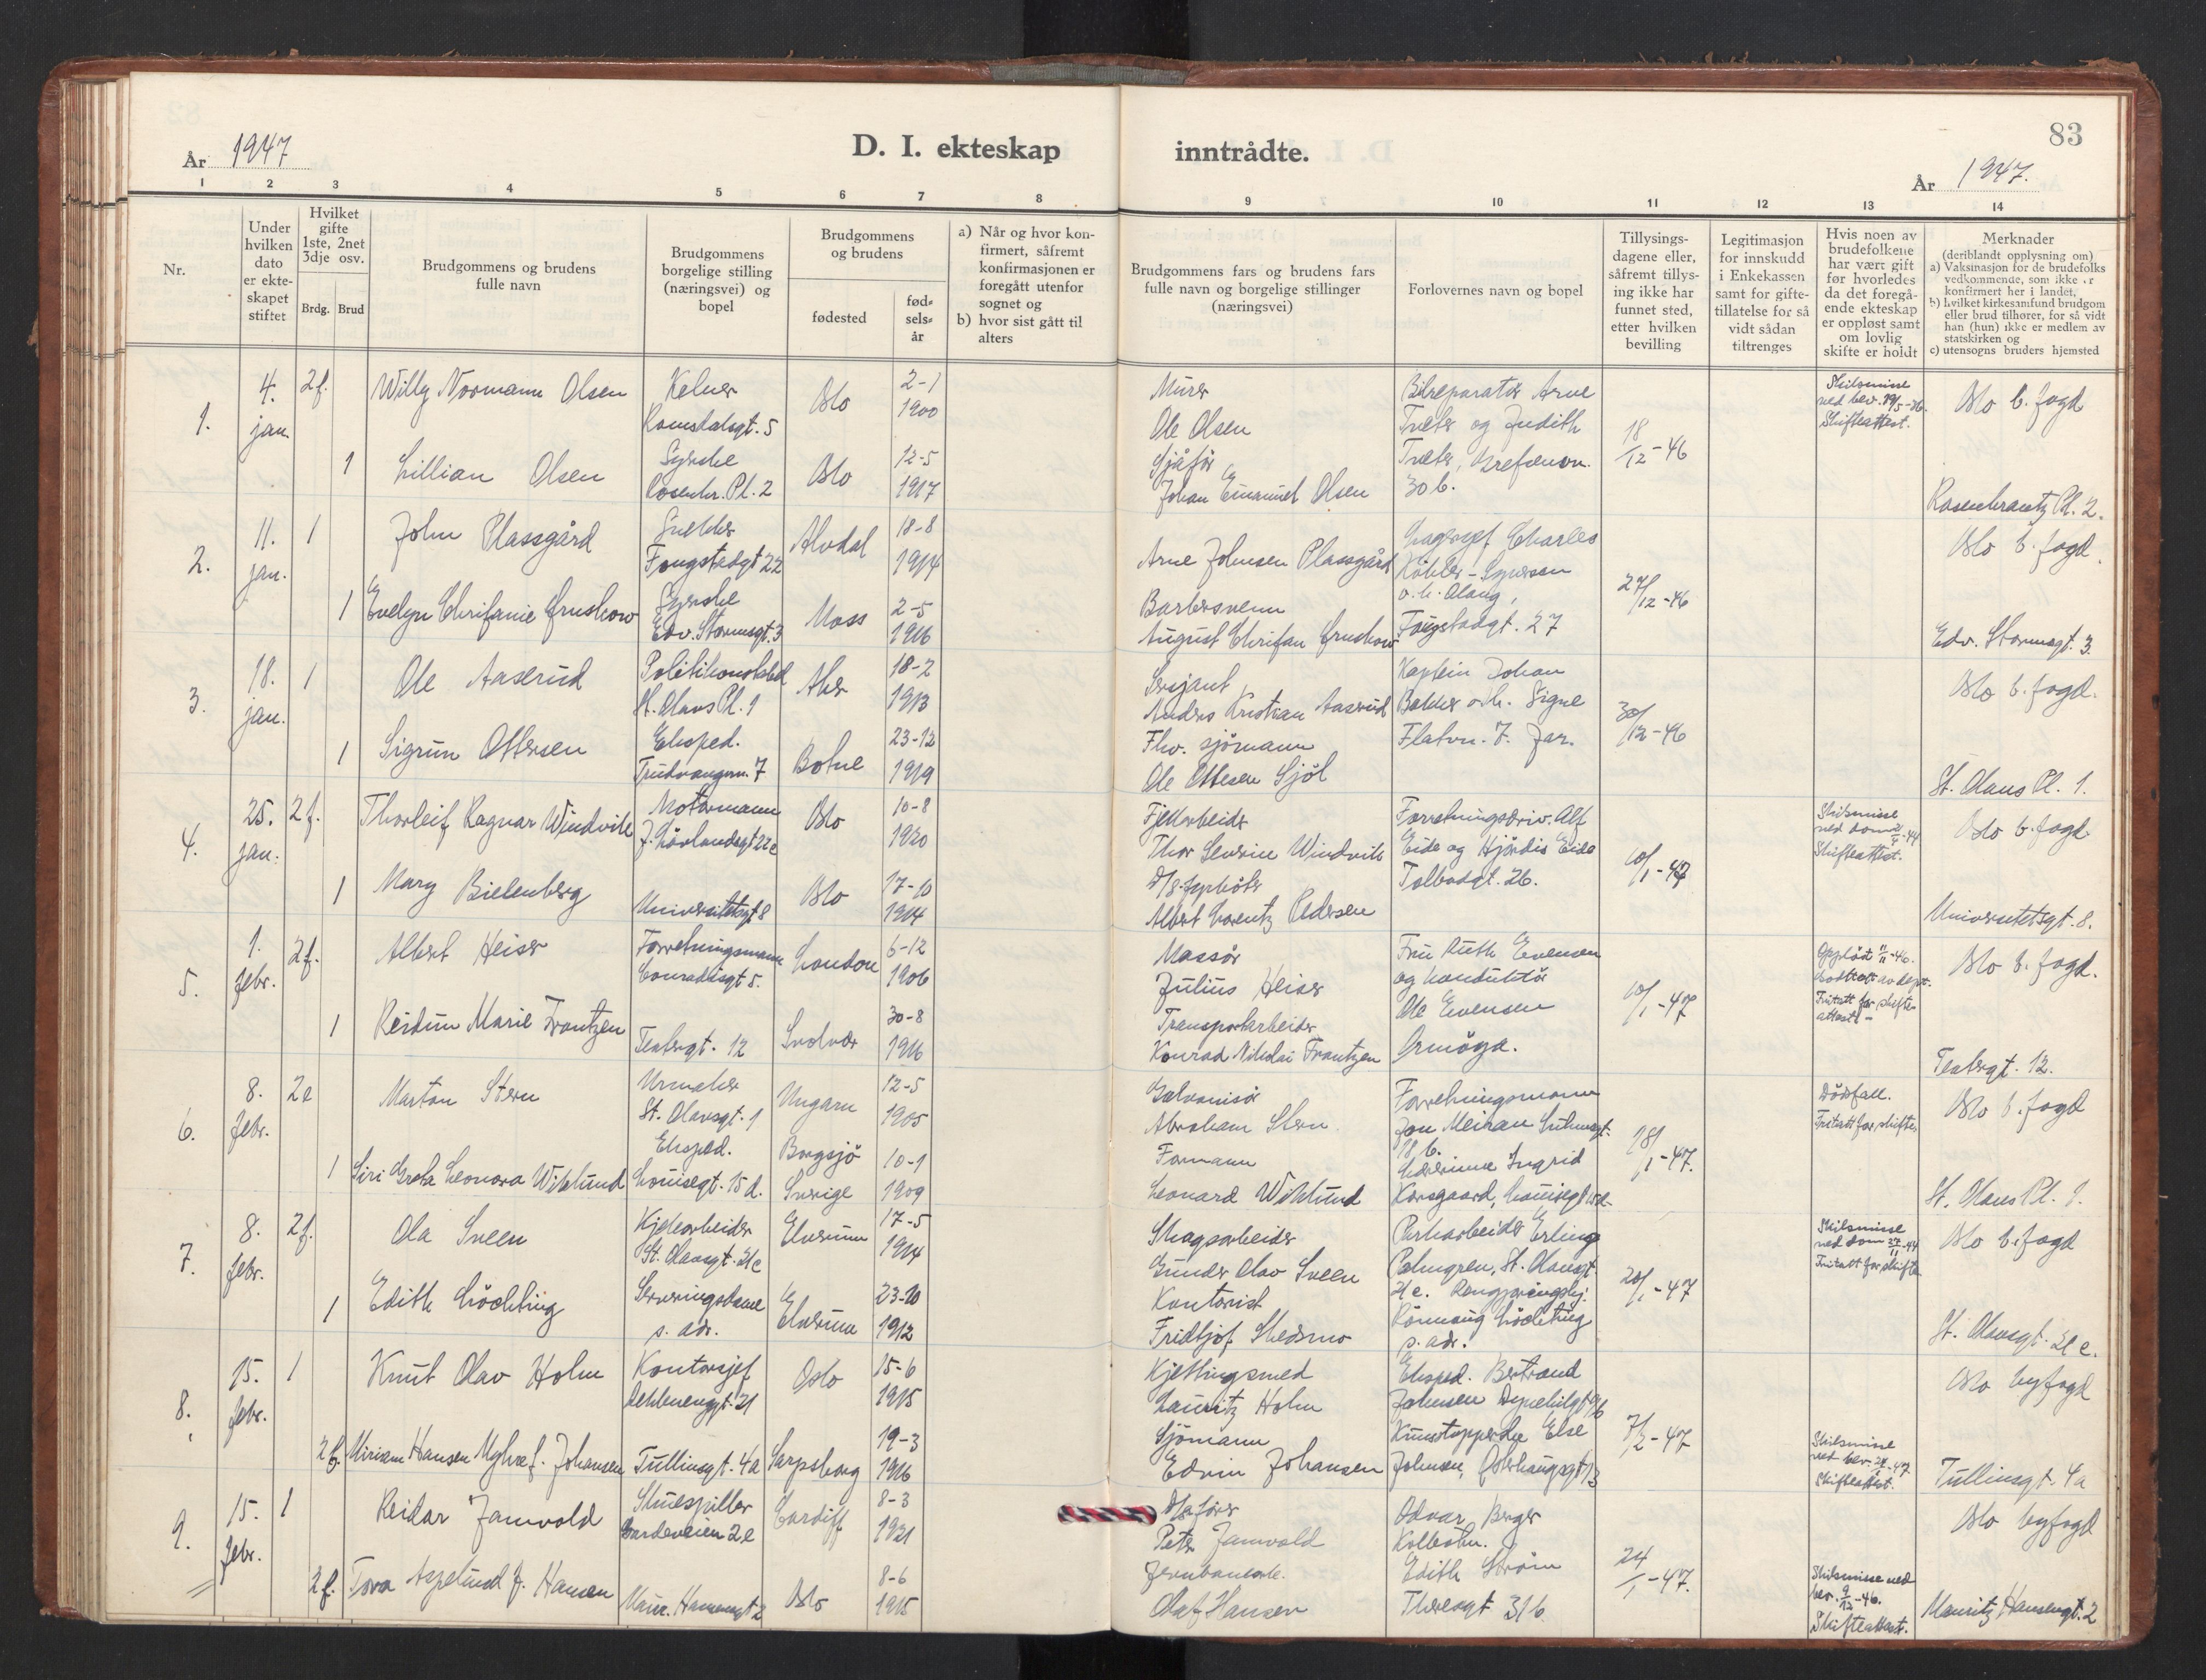 83
År 1947
D. I. ekteskap inntrådte.
År 1947.
1 2 3 4 5 6 7 8 9 10 11 12 13 14
Nr.
Under hvilken dato er ekteskapet stiftet
Hvilket gifte 1ste, 2net 3dje osv.
Brdg. Brud
Brudgommens og brudens fulle navn
Brudgommens borgelige stilling (næringsvei) og bopel
Brudgommens og brudens
fødested
fød-sels-år
a) Når og hvor konfirmert, såfremt konfirmasjonen er foregått utenfor sognet og
b) hvor sist gått til alters
Brudgommens fars og brudens fars fulle navn og borgelige stillinger (næringsvei)
Forlovernes navn og bopel
Tillysings-dagene eller, såfremt tillysing ikke har funnet sted, etter hvilken bevilling
Legitimasjon for innskudd i Enkekassen samt for giftetillatelse for så vidt sådan tiltrenges
Hvis noen av brudefolkene har vært gift før hvorledes da det foregående ekteskap er oppløst samt om lovlig skifte er holdt
Merknader
(deriblandt opplysning om)
a) Vaksinasjon for de brudefolks vedkommende, som ikke er konfirmert her i landet,
b) hvilket kirkesamfund brudgom eller brud tilhører, for så vidt han (hun) ikke er medlem av statskirken og
c) utensogns bruders hjemsted
1. 4. jan. 2f. Willy Normann Olsen
Kelner Romsdalsgt. 5
Oslo 2-1 1900
Murer Ole Olsen
Bilreparatør Arne Tveter og Judith Tveter, Grefsenvn. 30 b.
18/12-46
Skilsmisse ved bev. 29/5-36. Skifteattest.
Oslo b. fogd
1 Lillian Olsen
Syerske Rosenkr. Pl. 2
Oslo 12-5 1917
Sjåfør Johan Emanuel Olsen
Rosenkrantz Pl. 2.
2. 11. jan. 1 John Plassgård
Snekker Fougstadgt 22
Alvdal 18-8 1914
Arne Johnsen Plassgård
Lagersjef Charles Köhler-Syversen o.h. Alaug, Fougstadgt. 27
27/12-46
Oslo b. fogd.
1 Evelyn Chrifanie Gruehow
Syerske Edv. Stormsgt. 3
Moss 2-5 1916
Barbersvenn August Chrifan Gruehow
Edv. Stormsgt. 3.
3. 18. jan. 1 Ole Aaserud
Politikonstabel St. Olavs Pl. 1
Aker 18-2 1913
Sersjant Anders Kristian Aaserud
Kaptein Johan Bakker o.h. Signe Flatvn. 7. Jar.
30/12-46
Oslo b. fogd.
1 Sigrun Ottersen
Eksped. Trudvangvn. 7
Botne 23-12 1919
Fhv. sjömann Ole Ottesen Sjöl
St. Olavs Pl. 1.
4. 25. jan. 2f. Thorleif Ragnar Windvik
Motormann J. Lövlandsgt 22c
Oslo 10-8 1920
Fjellarbeider Thor Severin Windvik
Forretningsdriv. Alf Eide og Hjördis Eide Tolbodgt. 26.
10/1-47
Skilsmisse ved dom Skifteattest.
Oslo b. fogd.
1 Mary Bielenberg
Universitetsgt 8
Oslo 17-10 1914
D/S-fyrböter Albert Lorentz Pedersen
Universitetsgt. 8.
5. 1. febr. 2f. Albert Heiser
Forretningsmann Conradisgt 5.
London 6-12 1906
Massör Julius Heiser
Fru Ruth Evensen og konduktör Ole Evensen Ormöya.
10/1-47
Opplöst 11/11-46. Godtatt av dept. Fritatt for skifteattest.
Oslo b. fogd.
1 Reidun Marie Frantzen
Teatergt. 12
Svolvær 30-8 1916
Transportarbeider Konrad Nikolai Frantzen
Teatergt. 12.
6. 8. febr. 2e Marton Stern
Urmaker St. Olavsgt. 1
Ungarn 12-5 1905
Galvanisör Abraham Stern
Forretningsmann Jon Meiran Suhmsgt. 18 b. Lærerinne Ingrid Korsgaard, Louisegt 15 d.
18/1-47.
Dödsfall. Fritatt for skifte.
Oslo b. fogd
1 Siri Greta Leonora Wiklund
Eksped. Louisegt. 15 d.
Borgsjö Sverige 10-1 1909
Formann Leonard Wiklund
St. Olavs Pl. 1.
7. 8. febr. 2f. Ola Sveen
Kjelearbeider St. Olavsgt. 21c
Elverum 17-5 1914
Skogsarbeider Gunder Olav Sveen
Parkarbeider Erling Palmgren, St. Olavsgt. 21c. Rengjøringshj. Rönnaug Löcktug s. adr.
20/1-47
Skilsmisse ved dom 27/11-44 Fritatt for skifte
Oslo b. fogd
1 Edith Löchting
Serveringsdame s. adr.
Elverum 23-10 1912
Kontorist Fridtjof Skedsmo
St. Olavsgt. 21 c.
8. 15. febr. 1 Knut Olav Holm
Kontorsjef Dehlenenggt. 21
Oslo 15-6 1915
Kjettingsmed Lauritz Holm
Eksped. Bertrand Johnsen Kunststopperske Else Johnsen, Østerhausgt 13
7/2-47
Oslo byfogd
2f. Miriam Hansen Myhre f. Johansen
Tullinsgt. 4a
Sarpsborg 19-3 1916
Sjömann Edvin Johansen
Skilsmisse ved bev. Skifteattest.
Tullinsgt. 4a
9. 15. febr. 1 Reidar Jamvold
Skuespiller Gardeveien 2e
Cardiff 8-3 1921
Peter Jamvold
Odvar Berger Kolbotn. Edith Ström Theresgt 31 b
24/1-47.
Oslo byfogd
2f. Tora Aspelund f. Hansen
Maur. Hansensgt 2
Oslo 8-6 1915
Jernbanearb. Olaf Hansen
Skilsmisse ved bev. 9/12-46. Skifteattest.
Mauritz Hansensgt. 2